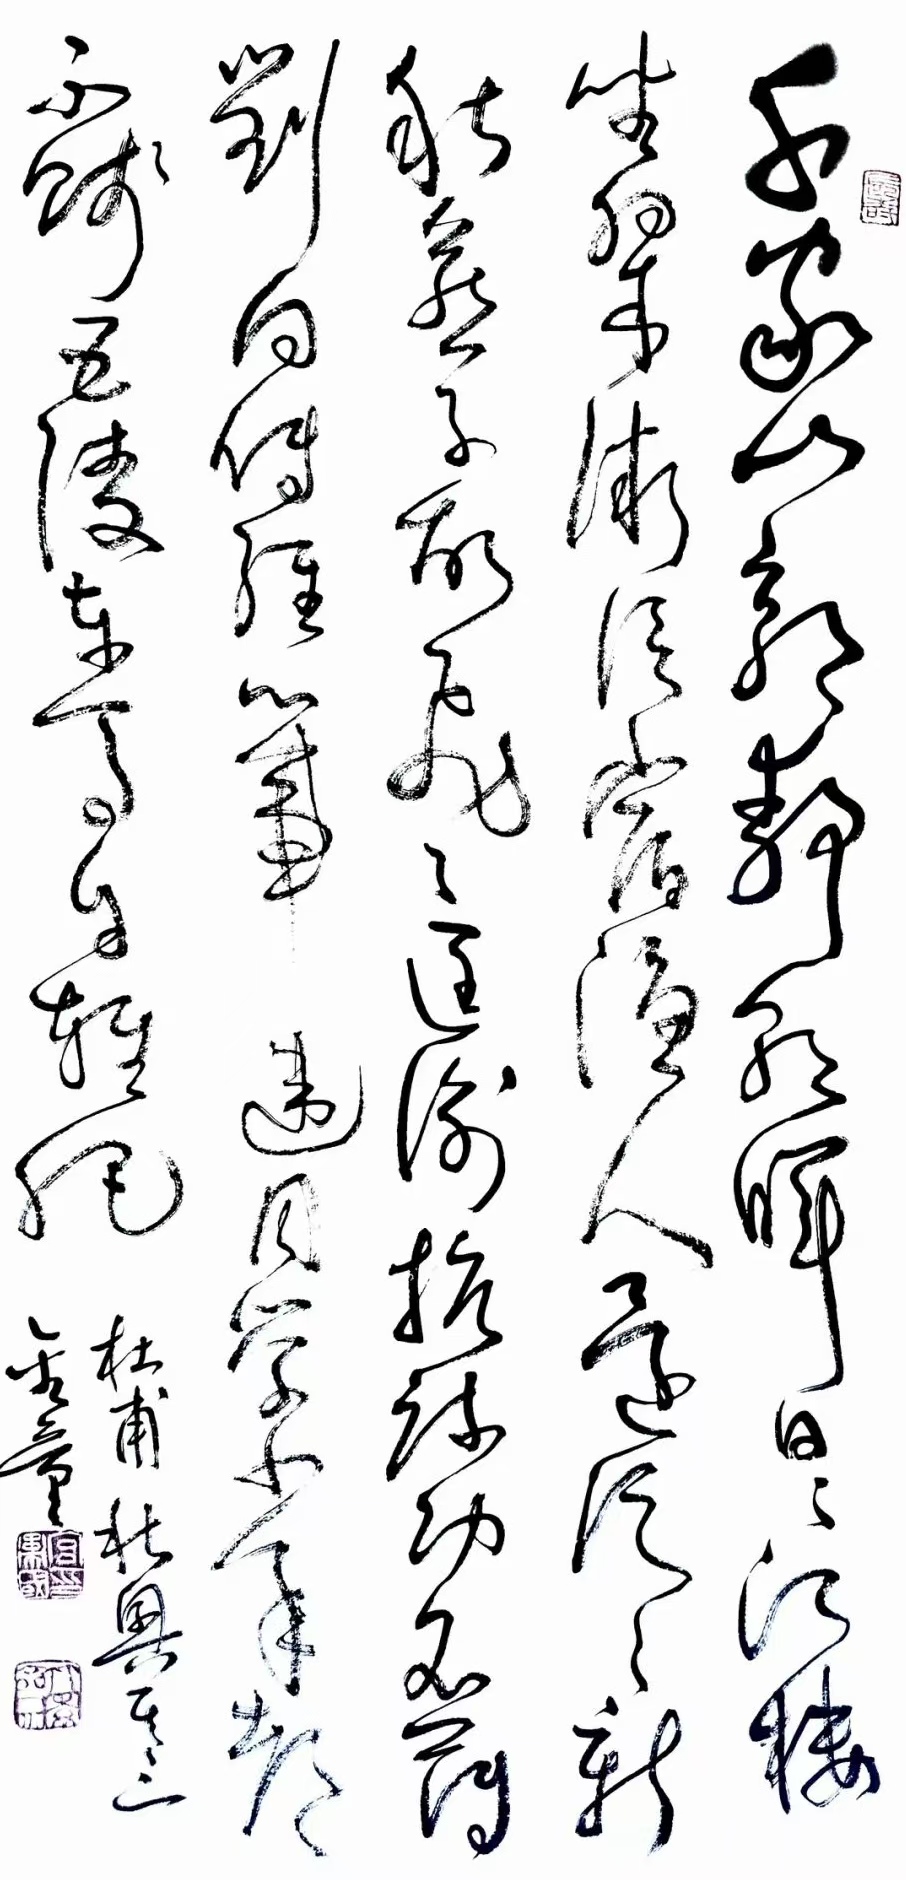 千家山郭靜朝暉日〻江樓
坐翠微信宿漁人還泛〻新
秋燕子故飛〻匡衡抗疏功名薄
劉向傳經心事違同學少年都
不賤五陵車馬自輕肥
杜甫秋興其三